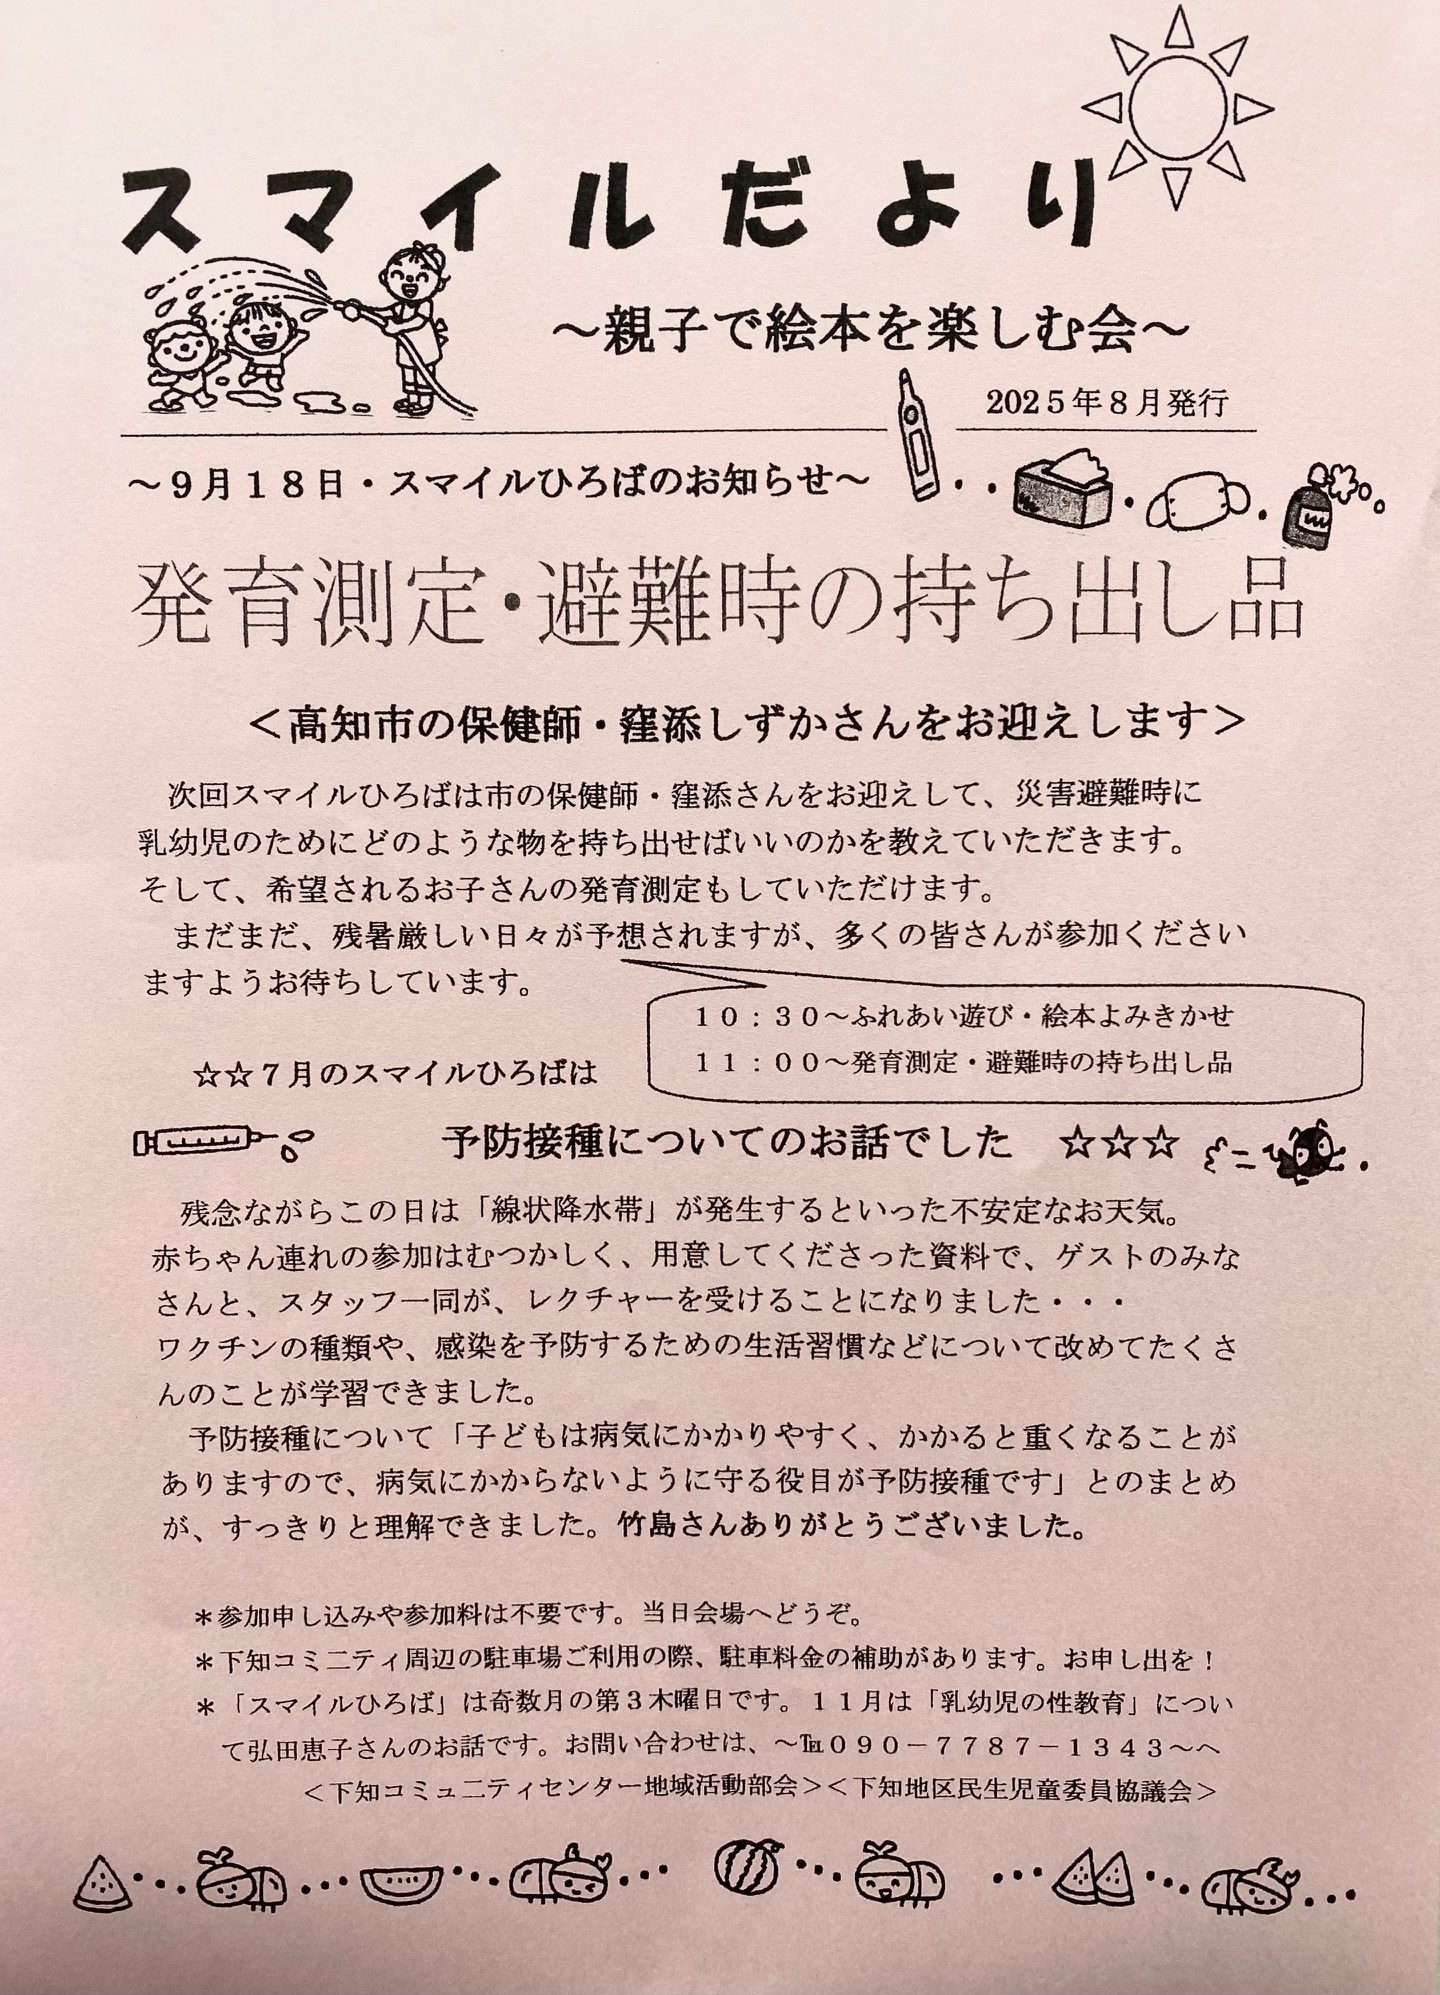 スマイルだより
～親子で絵本を楽しむ会～
2025年8月発行
～9月18日・スマイルひろばのお知らせ～
発育測定・避難時の持ち出し品
＜高知市の保健師・窪添しずかさんをお迎えします＞
次回スマイルひろばは市の保健師・窪添さんをお迎えして、災害避難時に
乳幼児のためにどのような物を持ち出せばいいのかを教えていただきます。
そして、希望されるお子さんの発育測定もしていただけます。
まだまだ、残暑厳しい日々が予想されますが、多くの皆さんが参加ください
ますようお待ちしています。
10：30～ふれあい遊び・絵本よみきかせ
11：00～発育測定・避難時の持ち出し品
☆☆7月のスマイルひろばは
予防接種についてのお話でした　☆☆☆
残念ながらこの日は「線状降水帯」が発生するといった不安定なお天気。
赤ちゃん連れの参加はむつかしく、用意してくださった資料で、ゲストのみな
さんと、スタッフ一同が、レクチャーを受けることになりました・・・
ワクチンの種類や、感染を予防するための生活習慣などについて改めてたくさ
んのことが学習できました。
予防接種について「子どもは病気にかかりやすく、かかると重くなることが
ありますので、病気にかからないように守る役目が予防接種です」とのまとめ
が、すっきりと理解できました。竹島さんありがとうございました。
＊参加申し込みや参加料は不要です。当日会場へどうぞ。
＊下知コミニティ周辺の駐車場ご利用の際、駐車料金の補助があります。お申し出を！
＊「スマイルひろば」は奇数月の第3木曜日です。11月は「乳幼児の性教育」につい
て弘田恵子さんのお話です。お問い合わせは、～℡090－7787－1343～へ
＜下知コミュニティセンター地域活動部会＞＜下知地区民生児童委員協議会＞